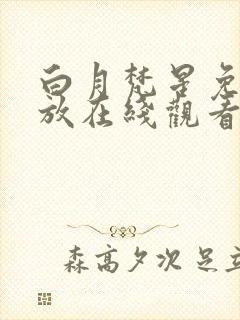 白月梵星免
放在綫觀看
森高夕次 足立